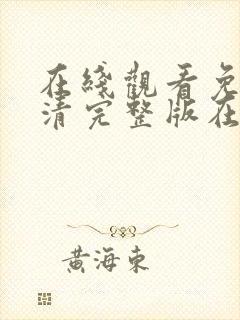 在綫觀看免
清完整版在
黄海東